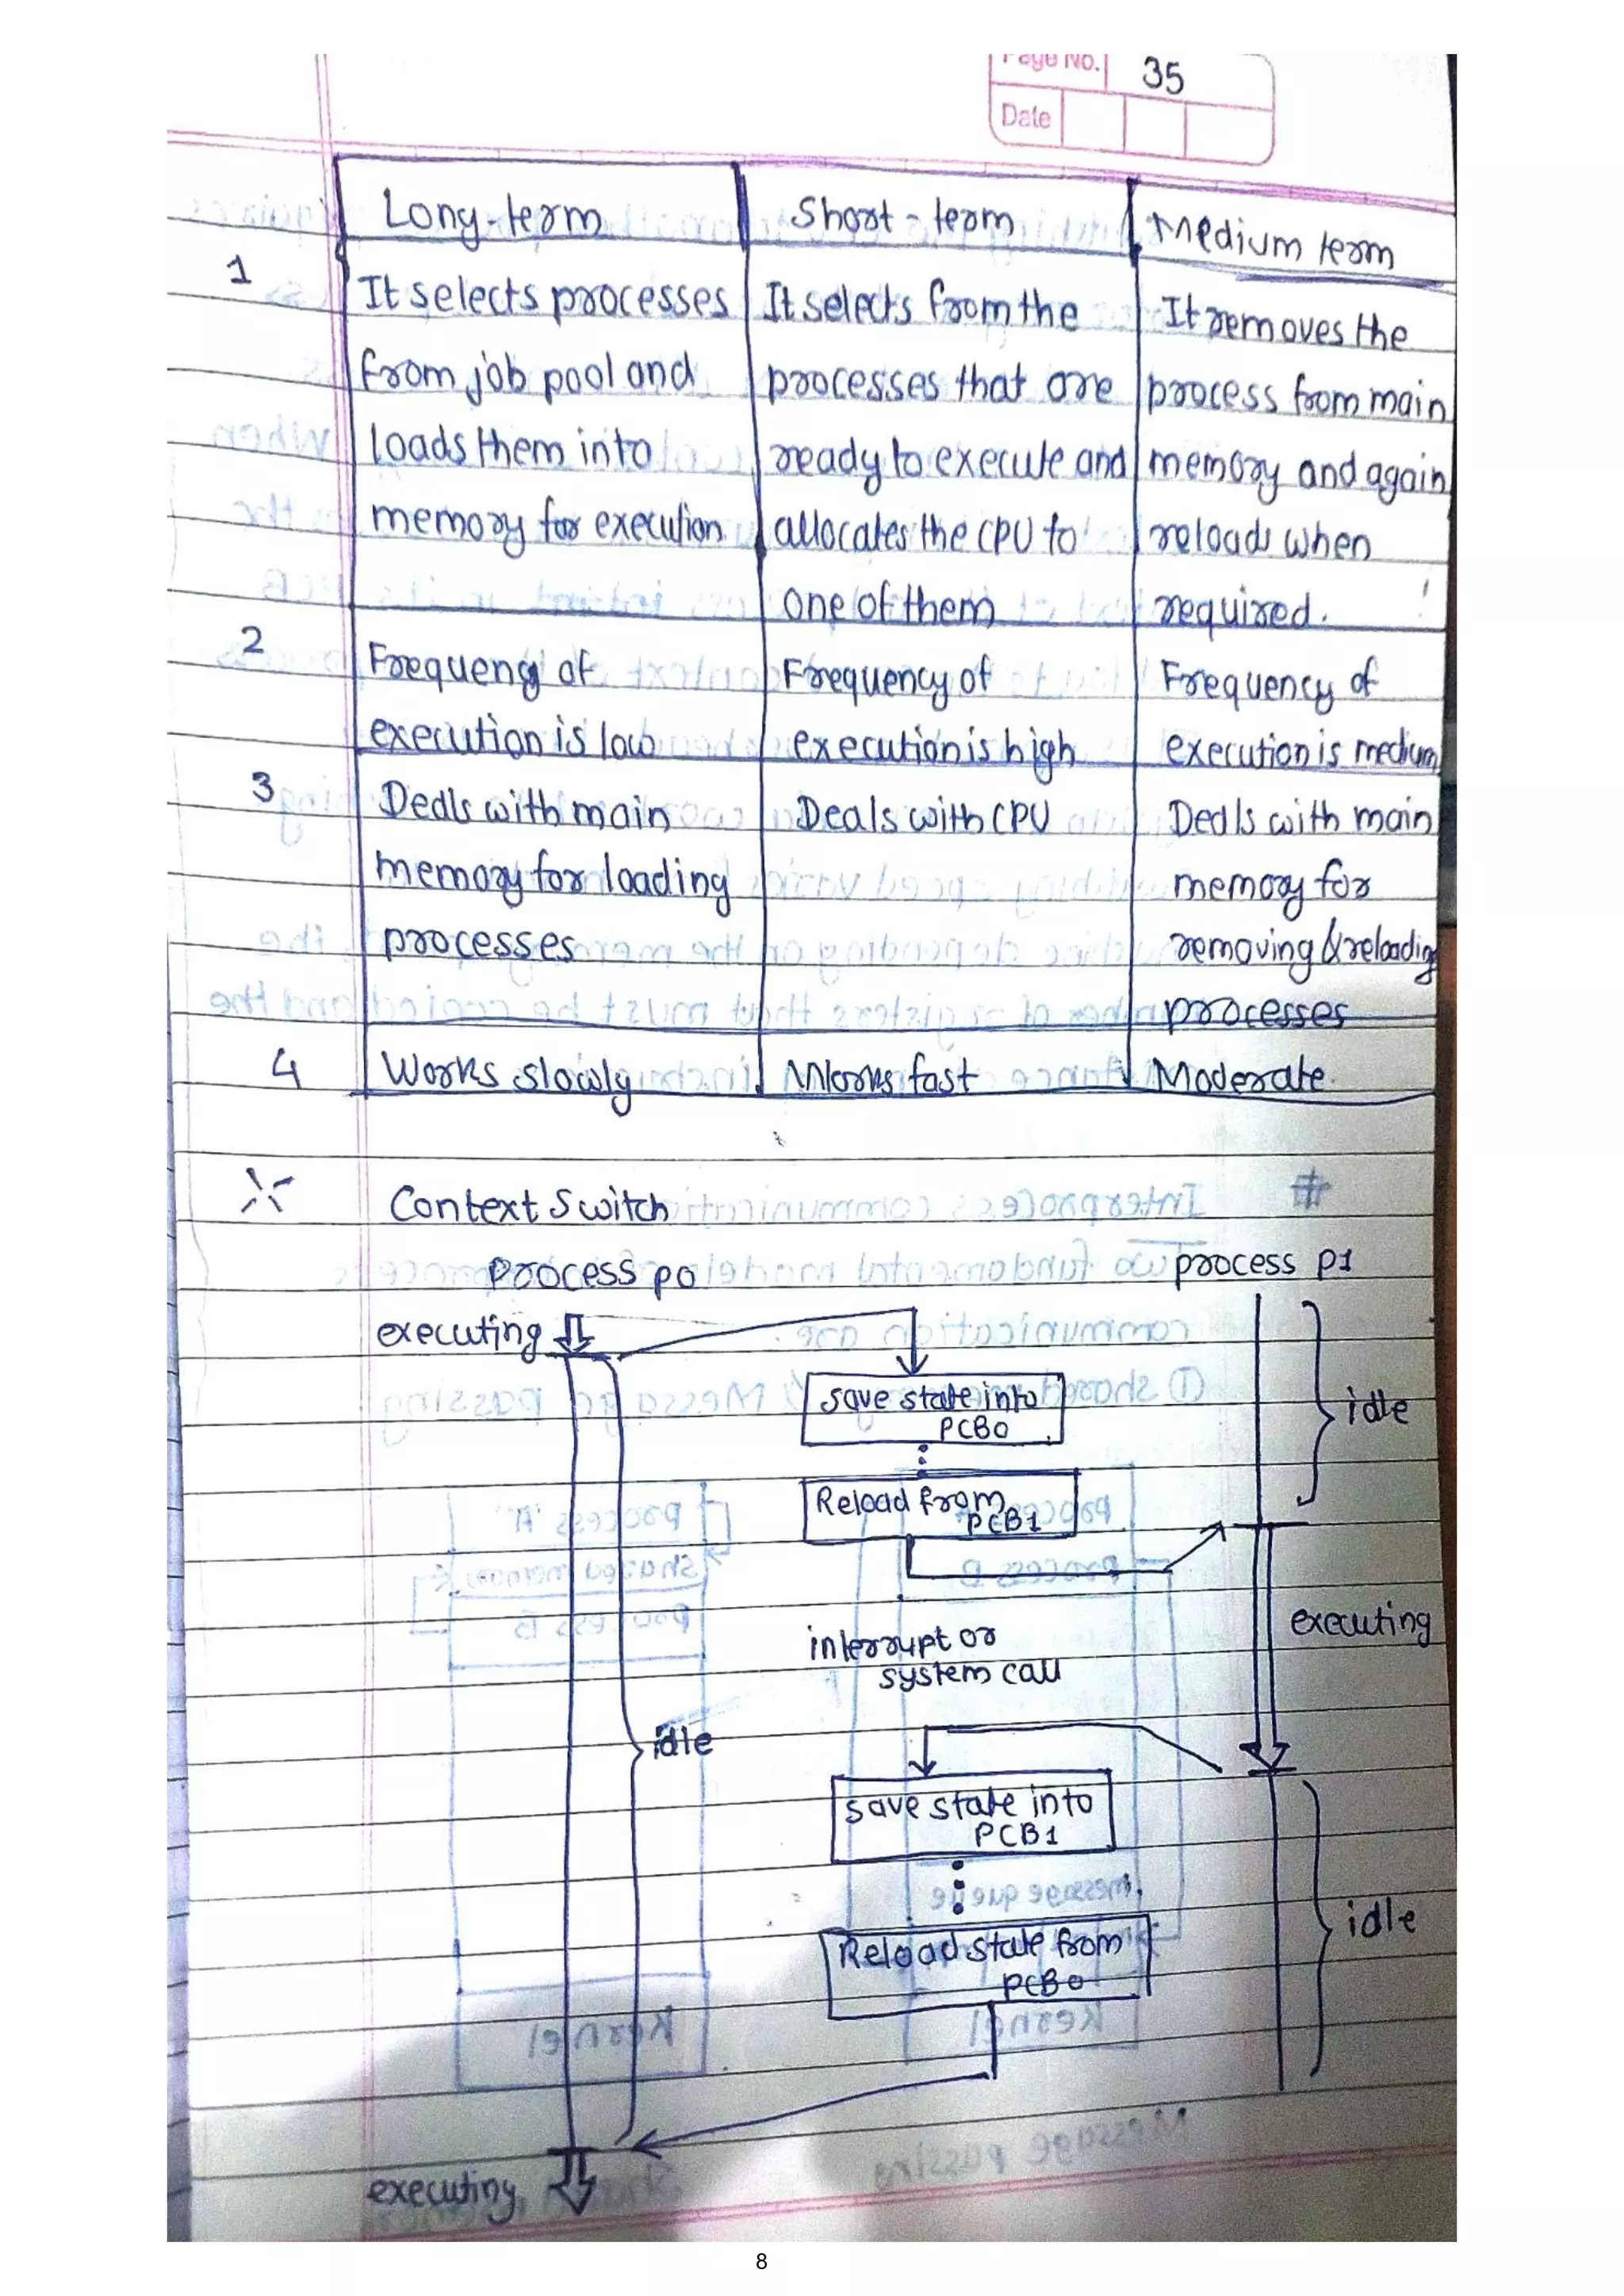 Page No. 35
Date
Long-term
Short-term
Medium term
1
It selects processes
from job pool and
loads them into
memory for execution
It selects from the
processes that are
ready to execute and
allocates the CPU to
one of them
It removes the
process from main
memory and again
reloads when
required.
2
Frequency of
execution is low
Frequency of
execution is high
Frequency of
execution is medium
3
Deals with main
memory for loading
processes
Deals with CPU
Deals with main
memory for
removing & reloading
processes
4
Works slowly
Works fast
Moderate.
Context Switch
process p0
process p1
executing
save state into
PCB0
idle
Reload from
PCB1
executing
interrupt or
system call
idle
save state into
PCB1
idle
Reload state from
PCB0
executing
8